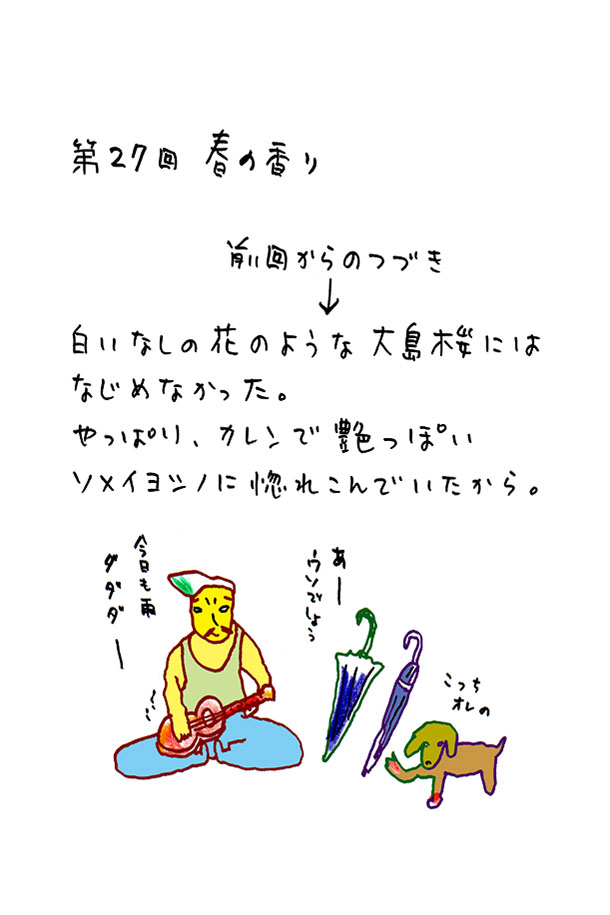 第27回 春の香り
前回からのつづき
↓
白いなしの花のような大島桜には
なじめなかった。
やっぱり、カレンで艶っぽい
ソメイヨシノに惚れこんでいたから。
今日も雨
ダダダー
あー
ウソでしょう
こっち
オレの